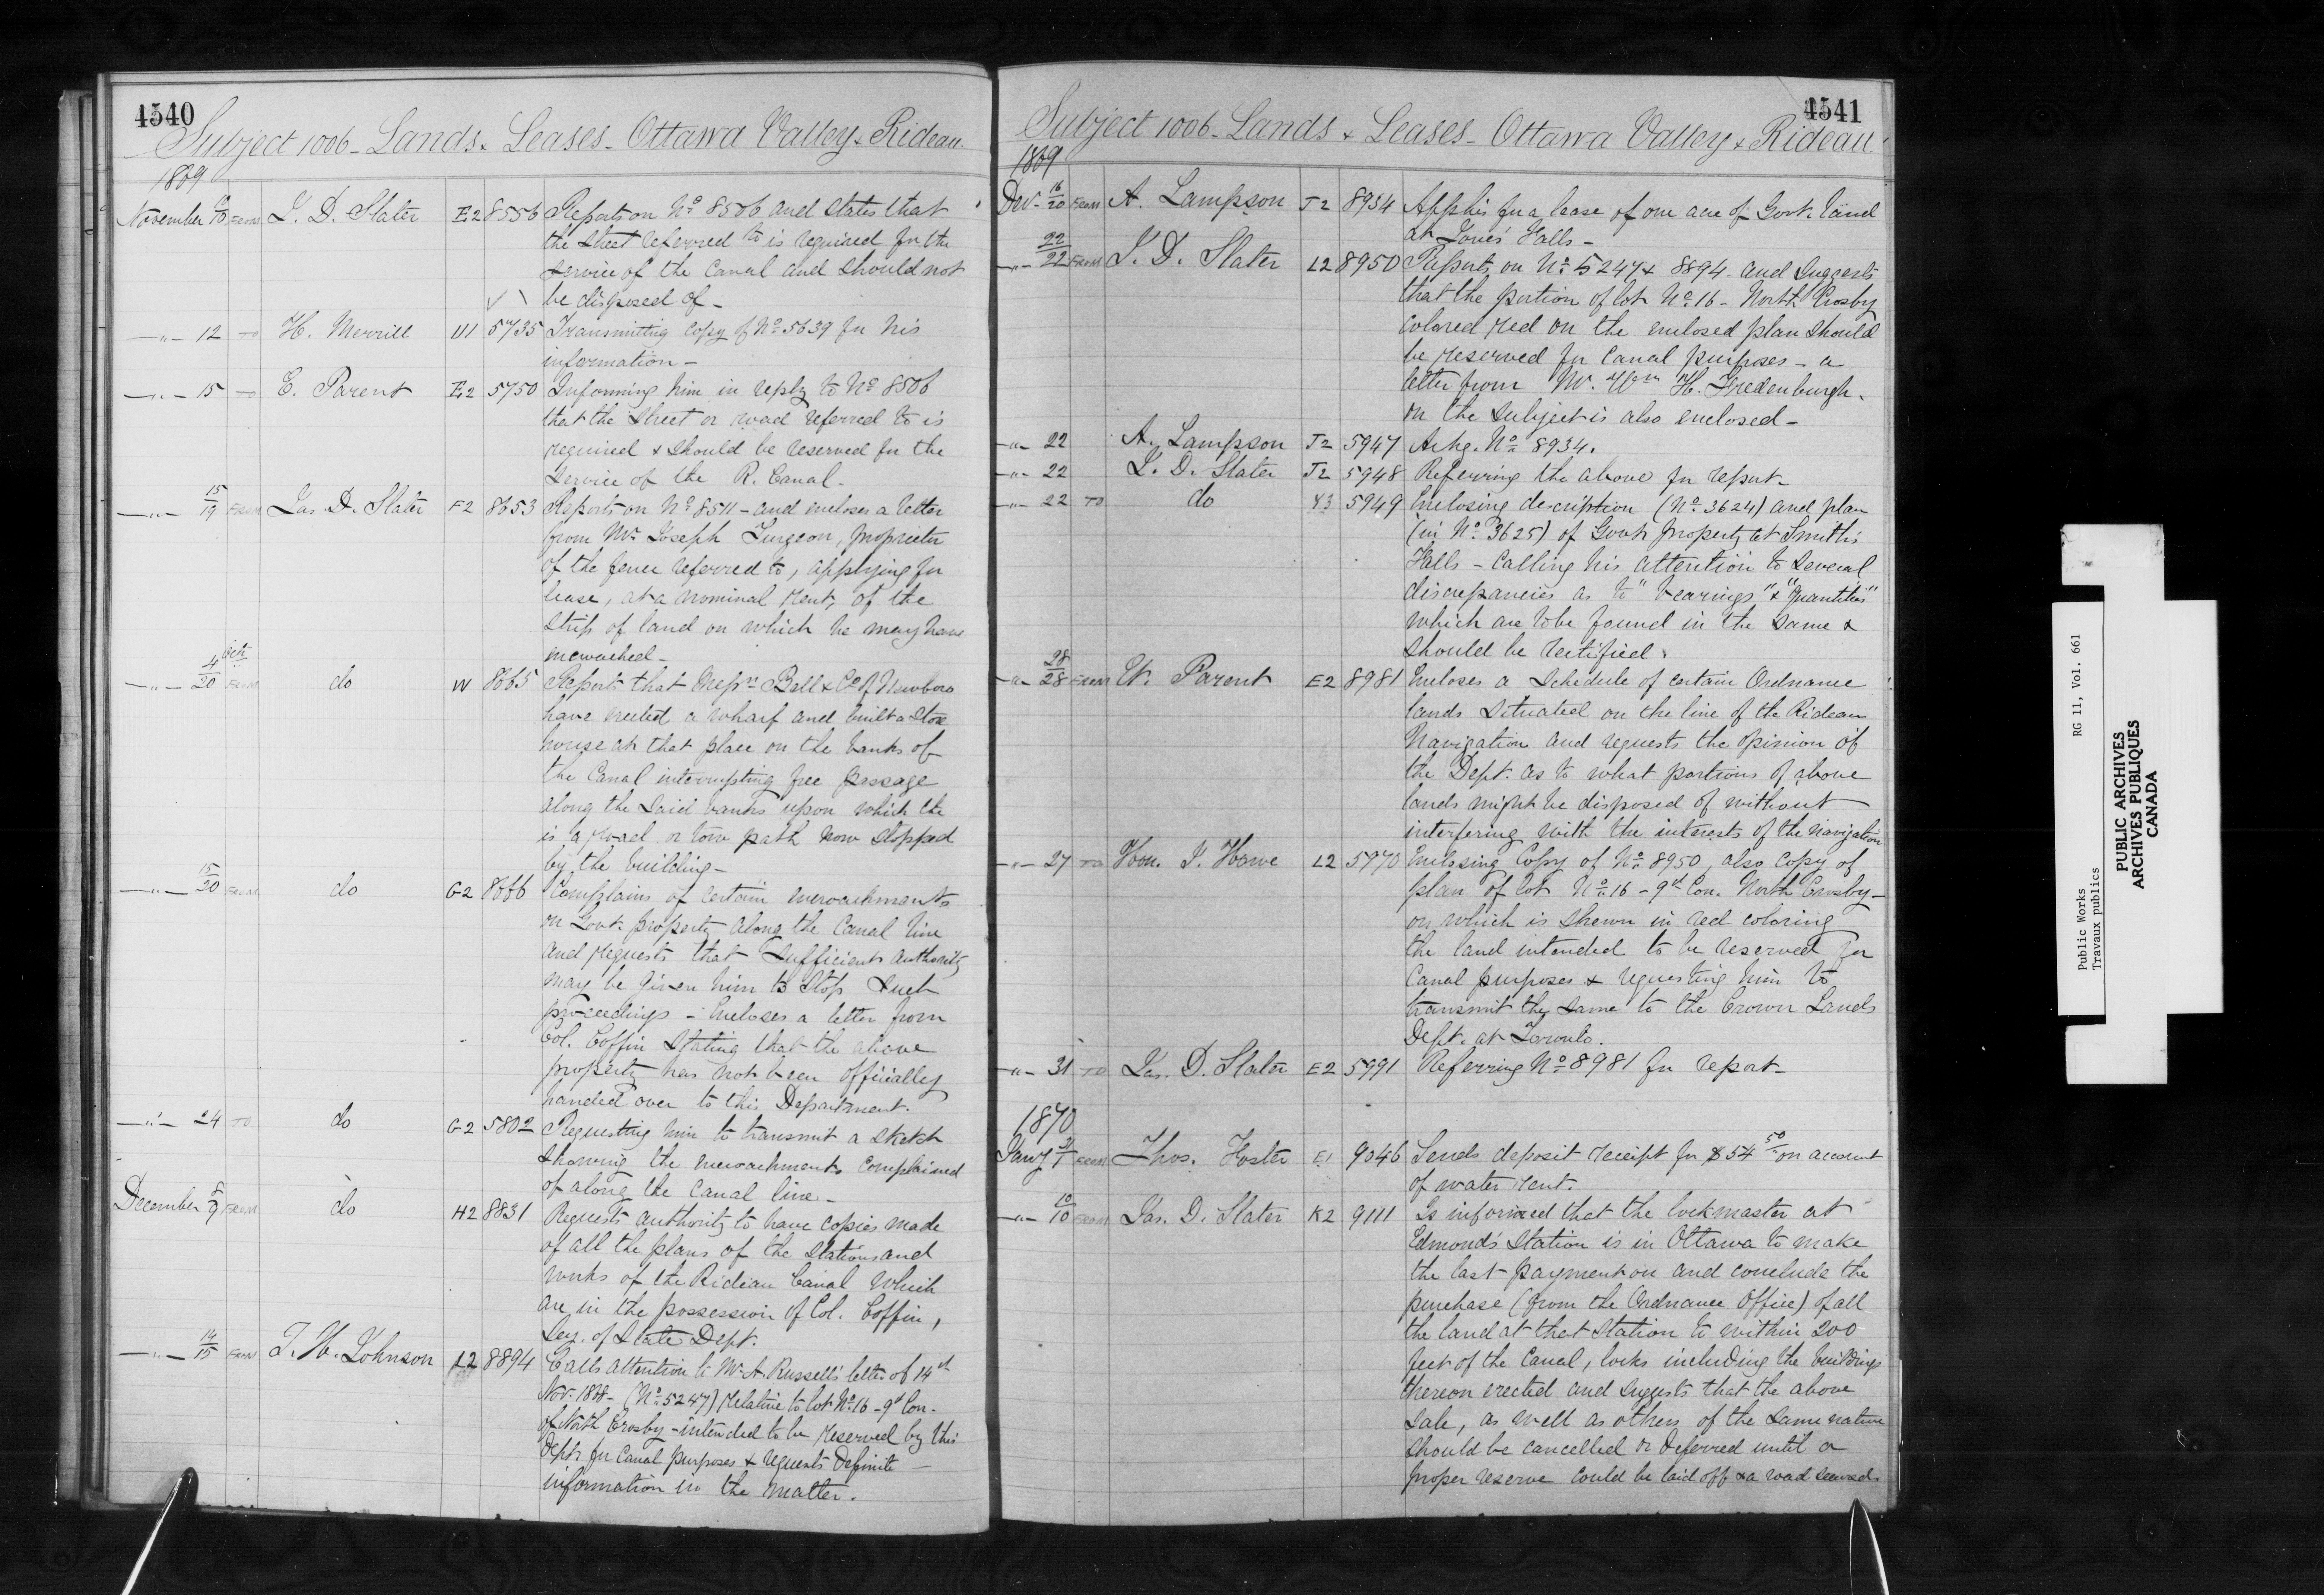 4540
Subject 1006 - Lands & Leases - Ottawa Valley & Rideau
1869
November 10 FROM J. D. Slater E2 8556 Reports on No 8506 and states that
the street referred to is required for the
service of the Canal and should not
be disposed of -
-"- 12 TO H. Merrill U1 5735 Transmitting copy of No 5639 for his
information -
-"- 15 E. Parent E2 5750 Informing him in reply to No 8506
that the street or road referred to is
required & should be reserved for the
Service of the R. Canal -
-"- 15/19 FROM Jas. D. Slater F2 8653 Reports on No 8511 - and encloses a letter
from Mr Joseph Turgeon, proprietor
of the fence referred to, applying for
lease, at a nominal rent, of the
strip of land on which he may have
encroached -
-"- 4 Oct/20 FROM do W 8665 Reports that Messrs Bell & Co of Newboro
have erected a wharf and built a store
house at that place on the banks of
the Canal interrupting free passage
along the said banks upon which the
is a road or tow path now stopped
by the building -
-"- 15/20 FROM do G2 8666 Complains of certain encroachments
on Govt. property along the Canal line
and requests that sufficient authority
may be given him to stop such
proceedings - Encloses a letter from
Col. Coffin stating that the above
property has not been officially
handed over to this Department.
-"- 24 TO do G2 5802 Requesting him to transmit a sketch
showing the encroachments complained
of along the Canal line -
December 8/9 FROM do H2 8831 Requests authority to have copies made
of all the plans of the stations and
works of the Rideau Canal which
are in the possession of Col. Coffin,
Secy. of State Dept.
-"- 14/15 FROM J. H. Johnson L2 8894 Calls attention to Mr A. Russell's letter of 14th
Nov. 1868 - (No 5247) relative to lot No 16 - 9th Con.
of North Crosby - intended to be reserved by this
Dept. for Canal purposes & requests definite
information in the matter.
4541
Subject 1006 - Lands & Leases - Ottawa Valley & Rideau
1869
Dec. 16/20 FROM A. Lampson J2 8934 Applies for a lease of one acre of Govt. land
at Jones' Falls -
-"- 22/22 FROM J. D. Slater L2 8950 Reports on No 5247 & 8894 - and suggests
that the portion of lot No 16 - North Crosby
colored red on the enclosed plan should
be reserved for Canal purposes - a
letter from Mr. Wm H. Fredenburgh -
on the subject is also enclosed -
-"- 22 A. Lampson J2 5947 Ackg. No 8934.
-"- 22 J. D. Slater J2 5948 Referring the above for report -
-"- 22 TO do 5949 Enclosing description (No 3624) and plan
(in No 3625) of Govt. property at Smith's
Falls - calling his attention to several
discrepancies as to "bearings" & "quantities"
which are to be found in the same &
should be rectified.
-"- 28/28 FROM E. Parent E2 8981 Encloses a Schedule of certain Ordnance
lands situated on the line of the Rideau
Navigation and requests the opinion of
the Dept. as to what portions of above
lands might be disposed of without
interfering with the interests of the navigation
-"- 27 TO Hon. J. Howe L2 5970 Enclosing Copy of No 8950, also copy of
plan of lot No 16 - 9th Con. North Crosby -
on which is shewn in red coloring
the land intended to be reserved for
Canal purposes & requesting him to
transmit the same to the Crown Lands
Dept. at Toronto.
-"- 31 TO Jas. D. Slater E2 5991 Referring No 8981 for report -
1870
Jany FROM Thos. Foster E1 9046 Sends deposit receipt for $54 50 on account
of water rent.
-"- 10/10 FROM Jas. D. Slater K2 9111 Is informed that the lockmaster at
Edmond's Station is in Ottawa to make
the last payment on and conclude the
purchase (from the Ordnance Office) of all
the land at that station to within 200
feet of the Canal, locks including the buildings
thereon erected and suggests that the above
sale, as well as others of the same nature
should be cancelled or deferred until a
proper reserve could be laid off & a road secured.
Public Works RG 11, Vol. 661
Travaux publics
PUBLIC ARCHIVES
ARCHIVES PUBLIQUES
CANADA